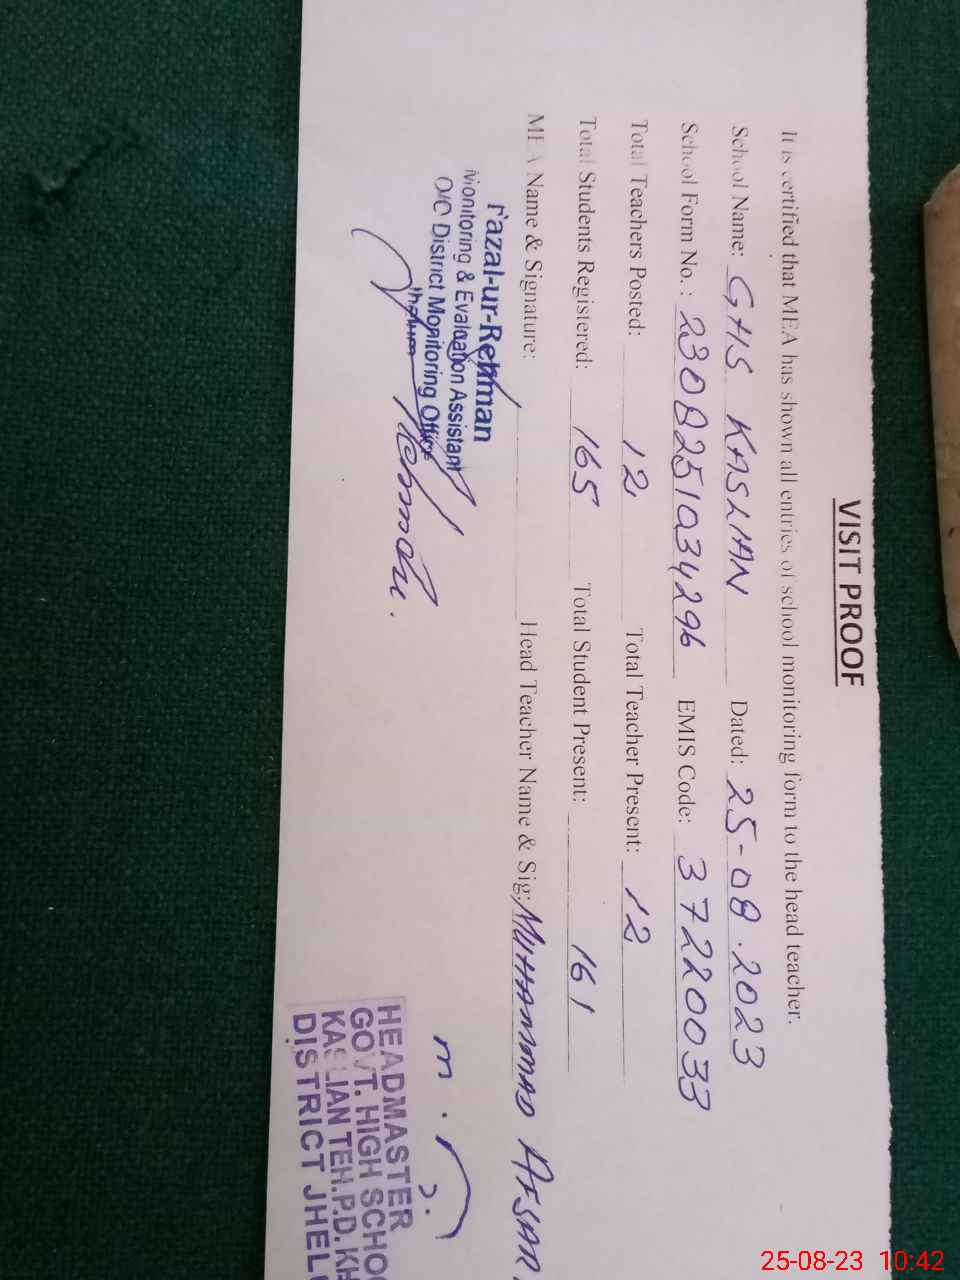 VISIT PROOF
It is certified that MEA has shown all entries of school monitoring form to the head teacher.
School Name: GHS KASLIAN Dated: 25-08.2023
School Form No.: 2308251034296 EMIS Code: 37220033
Total Teachers Posted: 12 Total Teacher Present: 12
Total Students Registered: 165 Total Student Present: 161
MEA Name & Signature: Head Teacher Name & Sig: MUHAMMAD AFSAR
Fazal-ur-Rehman
Monitoring & Evaluation Assistant
O/C District Monitoring Office
Jhelum
HEADMASTER
GOVT. HIGH SCHOO
KASLIAN TEH.P.D. KH
DISTRICT JHEL
25-08-23 10:42